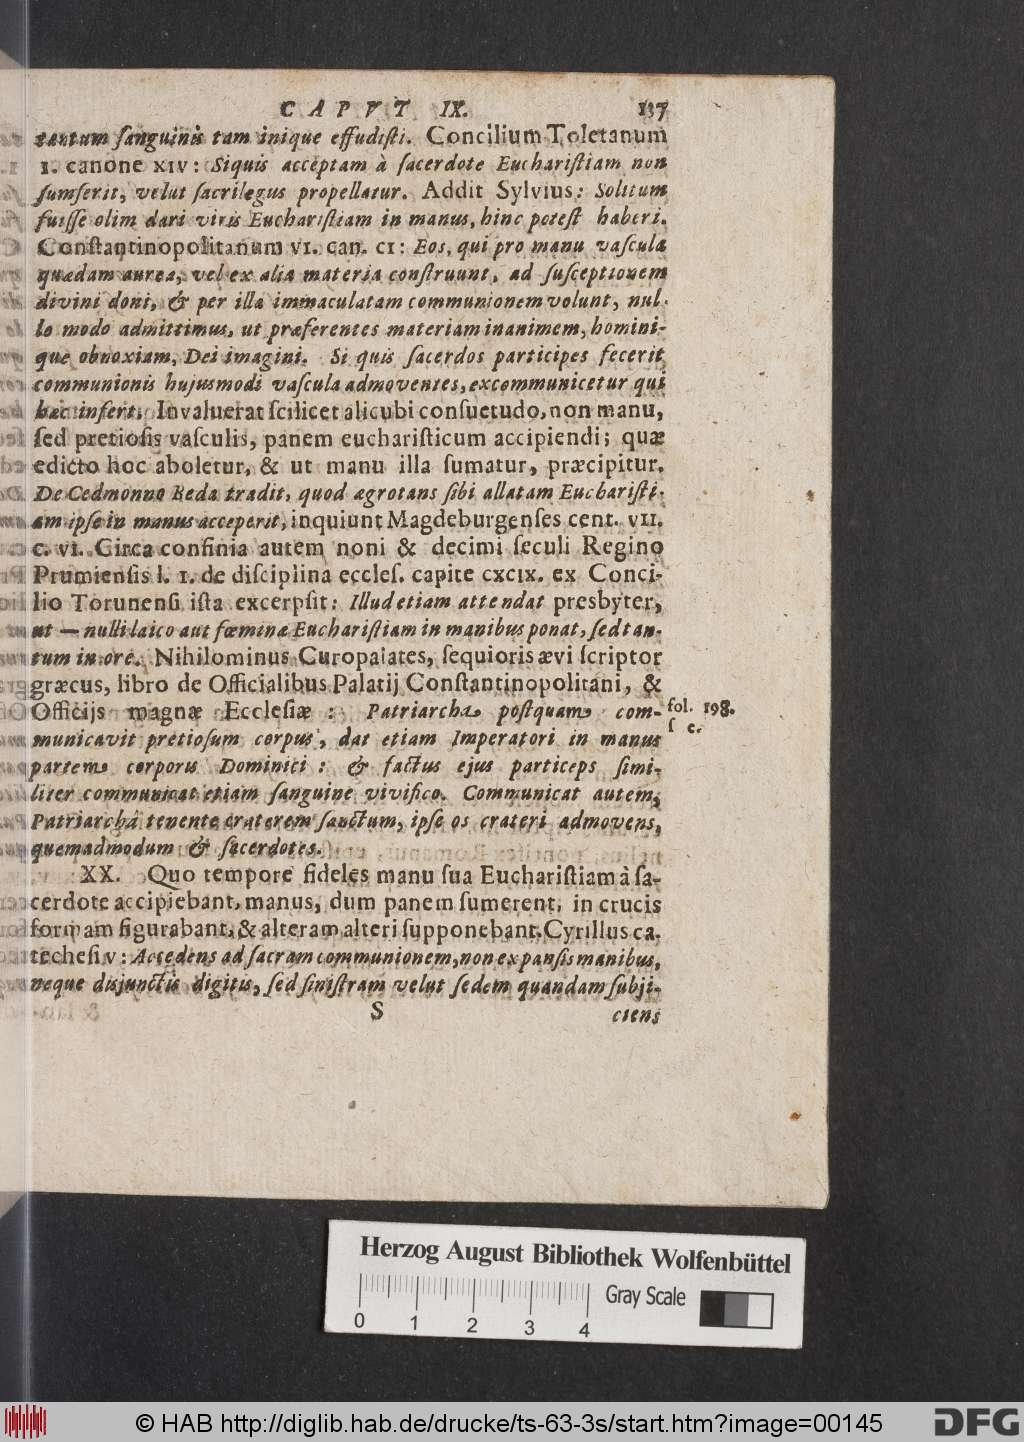 CAPVT IX. 137
tantum ſanguinis tam inique effudiſti. Concilium Toletanum
1. canone XIV: Siquis acceptam à ſacerdote Euchariſtiam non
ſumſerit, velut ſacrilegus propellatur. Addit Sylvius: Solitum
fuiſſe olim dari viris Euchariſtiam in manus, hinc poteſt haberi.
Conſtantinopolitanum VI. can. CI: Eos, qui pro manu vaſcula
quædam aurea, vel ex alia materia conſtruunt, ad ſuſceptionem
divini doni, & per illa immaculatam communionem volunt, nul-
lo modo admittimus, ut præferentes materiam inanimem, homini-
que obnoxiam, Dei imagini. Si quis ſacerdos participes fecerit
communionis hujusmodi vaſcula admoventes, excommunicetur qui
hæc infert. Invaluerat ſcilicet alicubi conſuetudo, non manu,
ſed pretioſis vaſculis, panem euchariſticum accipiendi; quæ
edicto hoc aboletur, & ut manu illa ſumatur, præcipitur.
De Cedmonno Beda tradit, quod ægrotans ſibi allatam Euchariſti-
am ipſe in manus acceperit, inquiunt Magdeburgenſes cent. VII.
c. VI. Circa confinia autem noni & decimi ſeculi Regino
Prumienſis l. 1. de diſciplina eccleſ. capite CXCIX. ex Conci-
lio Torunenſi iſta excerpſit: Illud etiam attendat presbyter,
ut — nulli laico aut fœminæ Euchariſtiam in manibus ponat, ſed tan-
tum in ore. Nihilominus Curopalates, ſequioris ævi ſcriptor
græcus, libro de Officialibus Palatij Conſtantinopolitani, &
Officijs magnæ Eccleſiæ : Patriarcha poſtquam com-
fol. 198.
ſ c.
municavit pretioſum corpus, dat etiam Imperatori in manus
partem corporis Dominici : & factus ejus particeps ſimi-
liter communicat etiam ſanguine vivifico. Communicat autem,
Patriarchâ tenente craterem ſanctum, ipſe os crateri admovens,
quemadmodum & ſacerdotes.
XX. Quo tempore fideles manu ſua Euchariſtiam à ſa-
cerdote accipiebant, manus, dum panem ſumerent, in crucis
formam figurabant, & alteram alteri ſupponebant. Cyrillus ca-
techeſi V: Accedens ad ſacram communionem, non expanſis manibus,
neque disjunctis digitis, ſed ſiniſtram velut ſedem quandam ſubji-
S ciens
Herzog August Bibliothek Wolfenbüttel
Gray Scale
0 1 2 3 4
© HAB http://diglib.hab.de/drucke/ts-63-3s/start.htm?image=00145
DFG